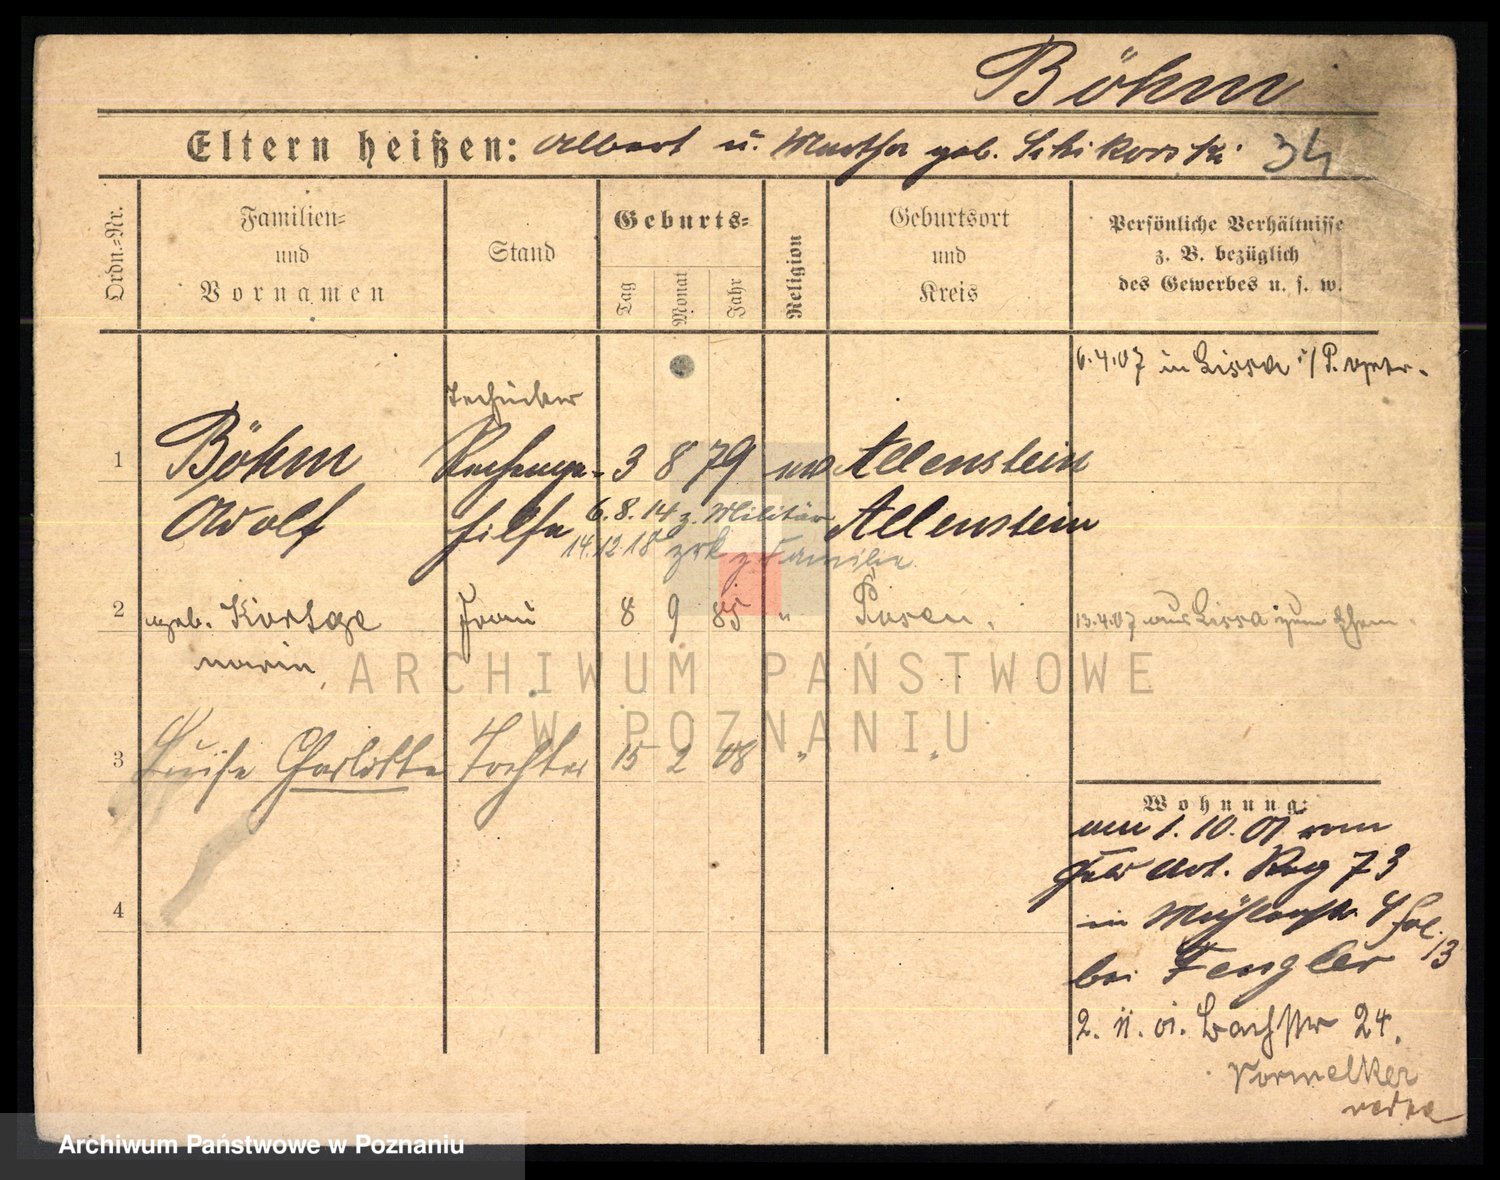 Böhm
Eltern heißen: Albert u. Martha geb. Schikorski 34
Ordn.-Nr.
Familien-
und
Vornamen
Stand
Geburts-
Tag
Monat
Jahr
Religion
Geburtsort
und
Kreis
Persönliche Verhältnisse
z. B. bezüglich
des Gewerbes u. s. w.
6.4.07 in Lissa i/P.
Techniker
1 Böhm 3 8 79 ev Allenstein
Adolf hilfe 6.8.14 z. Militär Allenstein
14.12.18 zrk z. Familie
2 geb. Frau 8 9 85 " Posen.
13.4.07 aus Lissa zum
3 Luise Charlotte Tochter 15 2 08 " "
4
Wohnung:
am 1.10.01 vom
Feld Art. Reg 73
in 4
bei Fengler 13
2. 11. 01. Bachstr 24.
ARCHIWUM PAŃSTWOWE
W POZNANIU
Archiwum Państwowe w Poznaniu